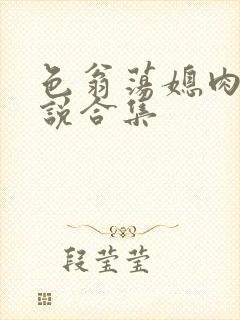 色翁荡媳肉
说合集
段莹莹